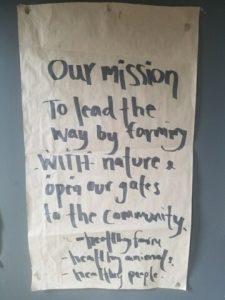 Our mission
To lead the
way by farming
WITH nature &
open our gates
to the community.
- healthy farm
- healthy animals.
- healthy people.